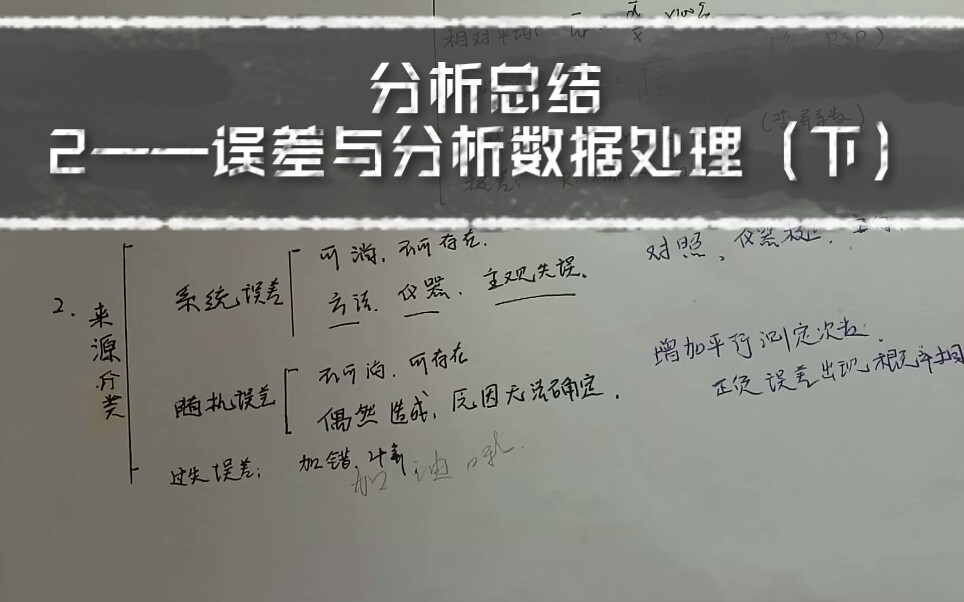 相对平均 x100%
RSD)
分析总结
2——误差与分析数据处理（下）
2. 来源分类
系统误差
可消，不可存在.
方法. 仪器. 主观失误.
对照、仪器校正.
随机误差
不可消，可存在
偶然造成，原因无法确定.
增加平行测定次数.
正负误差出现概率相同
过失误差: 加错，
加油呀.